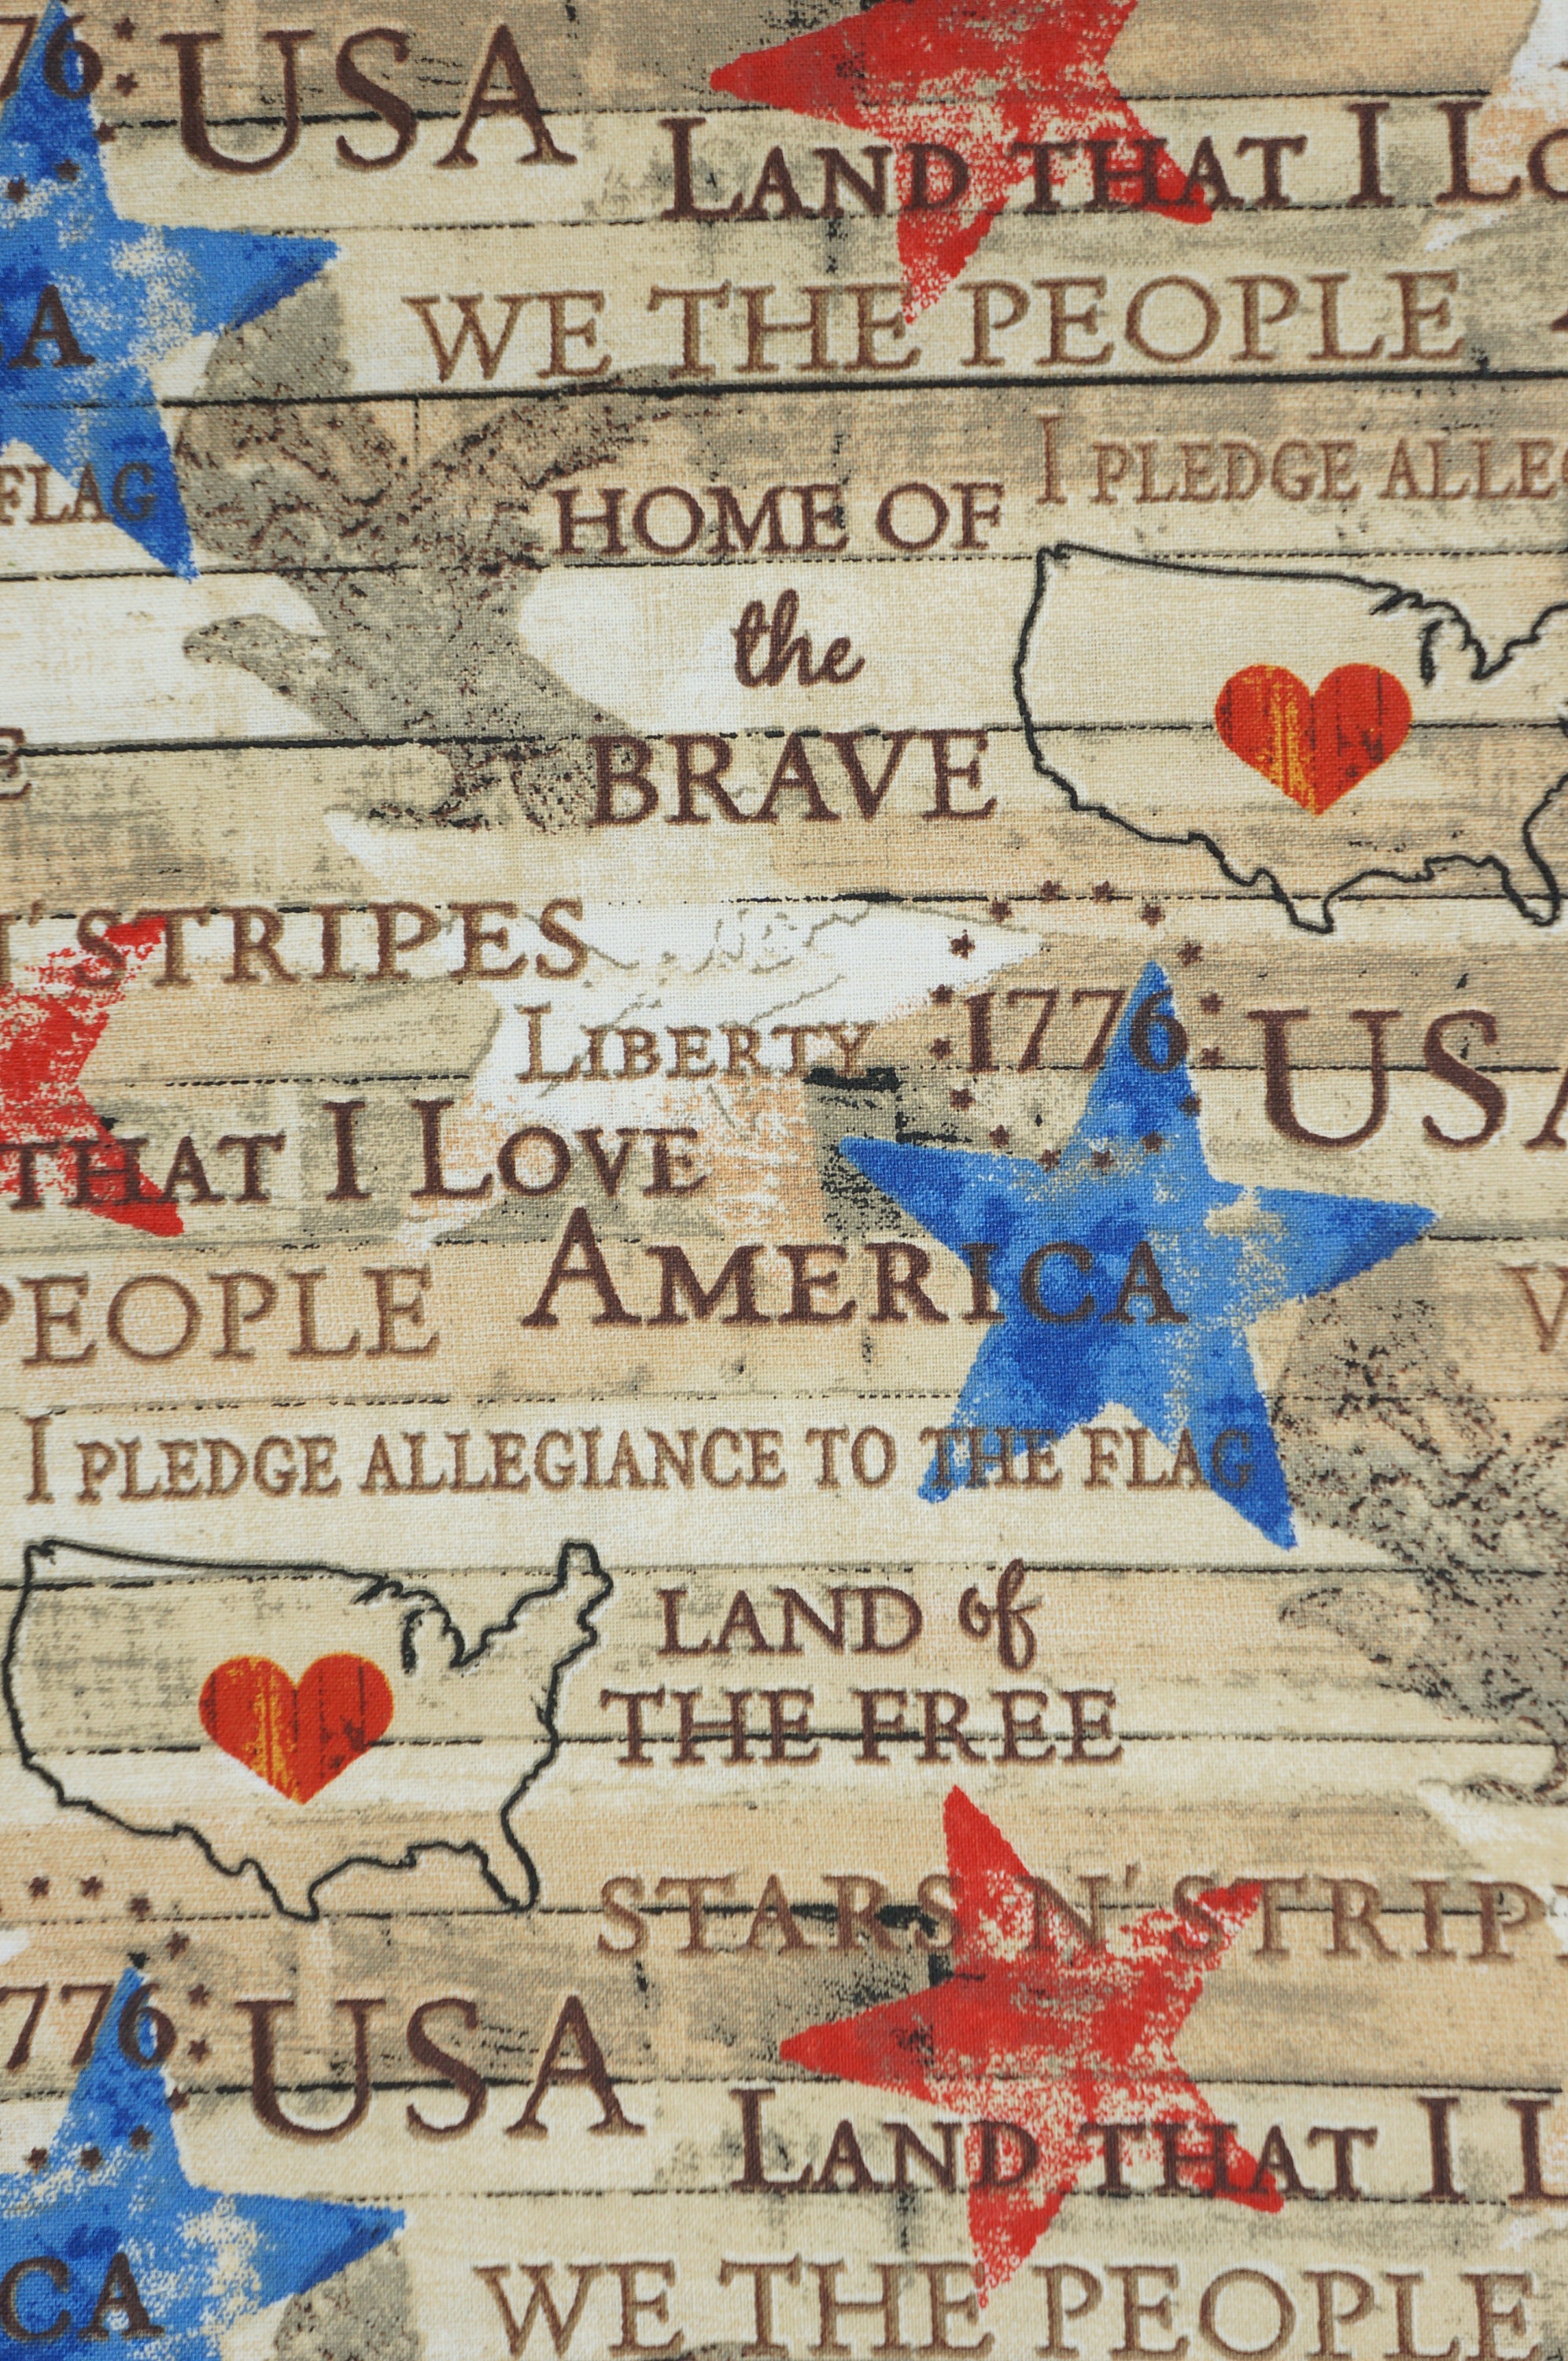 76
USA
LAND THAT I LO
WE THE PEOPLE
A
I PLEDGE ALLEG
FLAG
HOME OF
the
BRAVE
E
N' STRIPES
LIBERTY
1776
USA
THAT I LOVE
AMERICA
PEOPLE
I PLEDGE ALLEGIANCE TO THE FLAG
LAND of
THE FREE
STARS N' STRIP
776
USA
LAND THAT I L
CA
WE THE PEOPLE